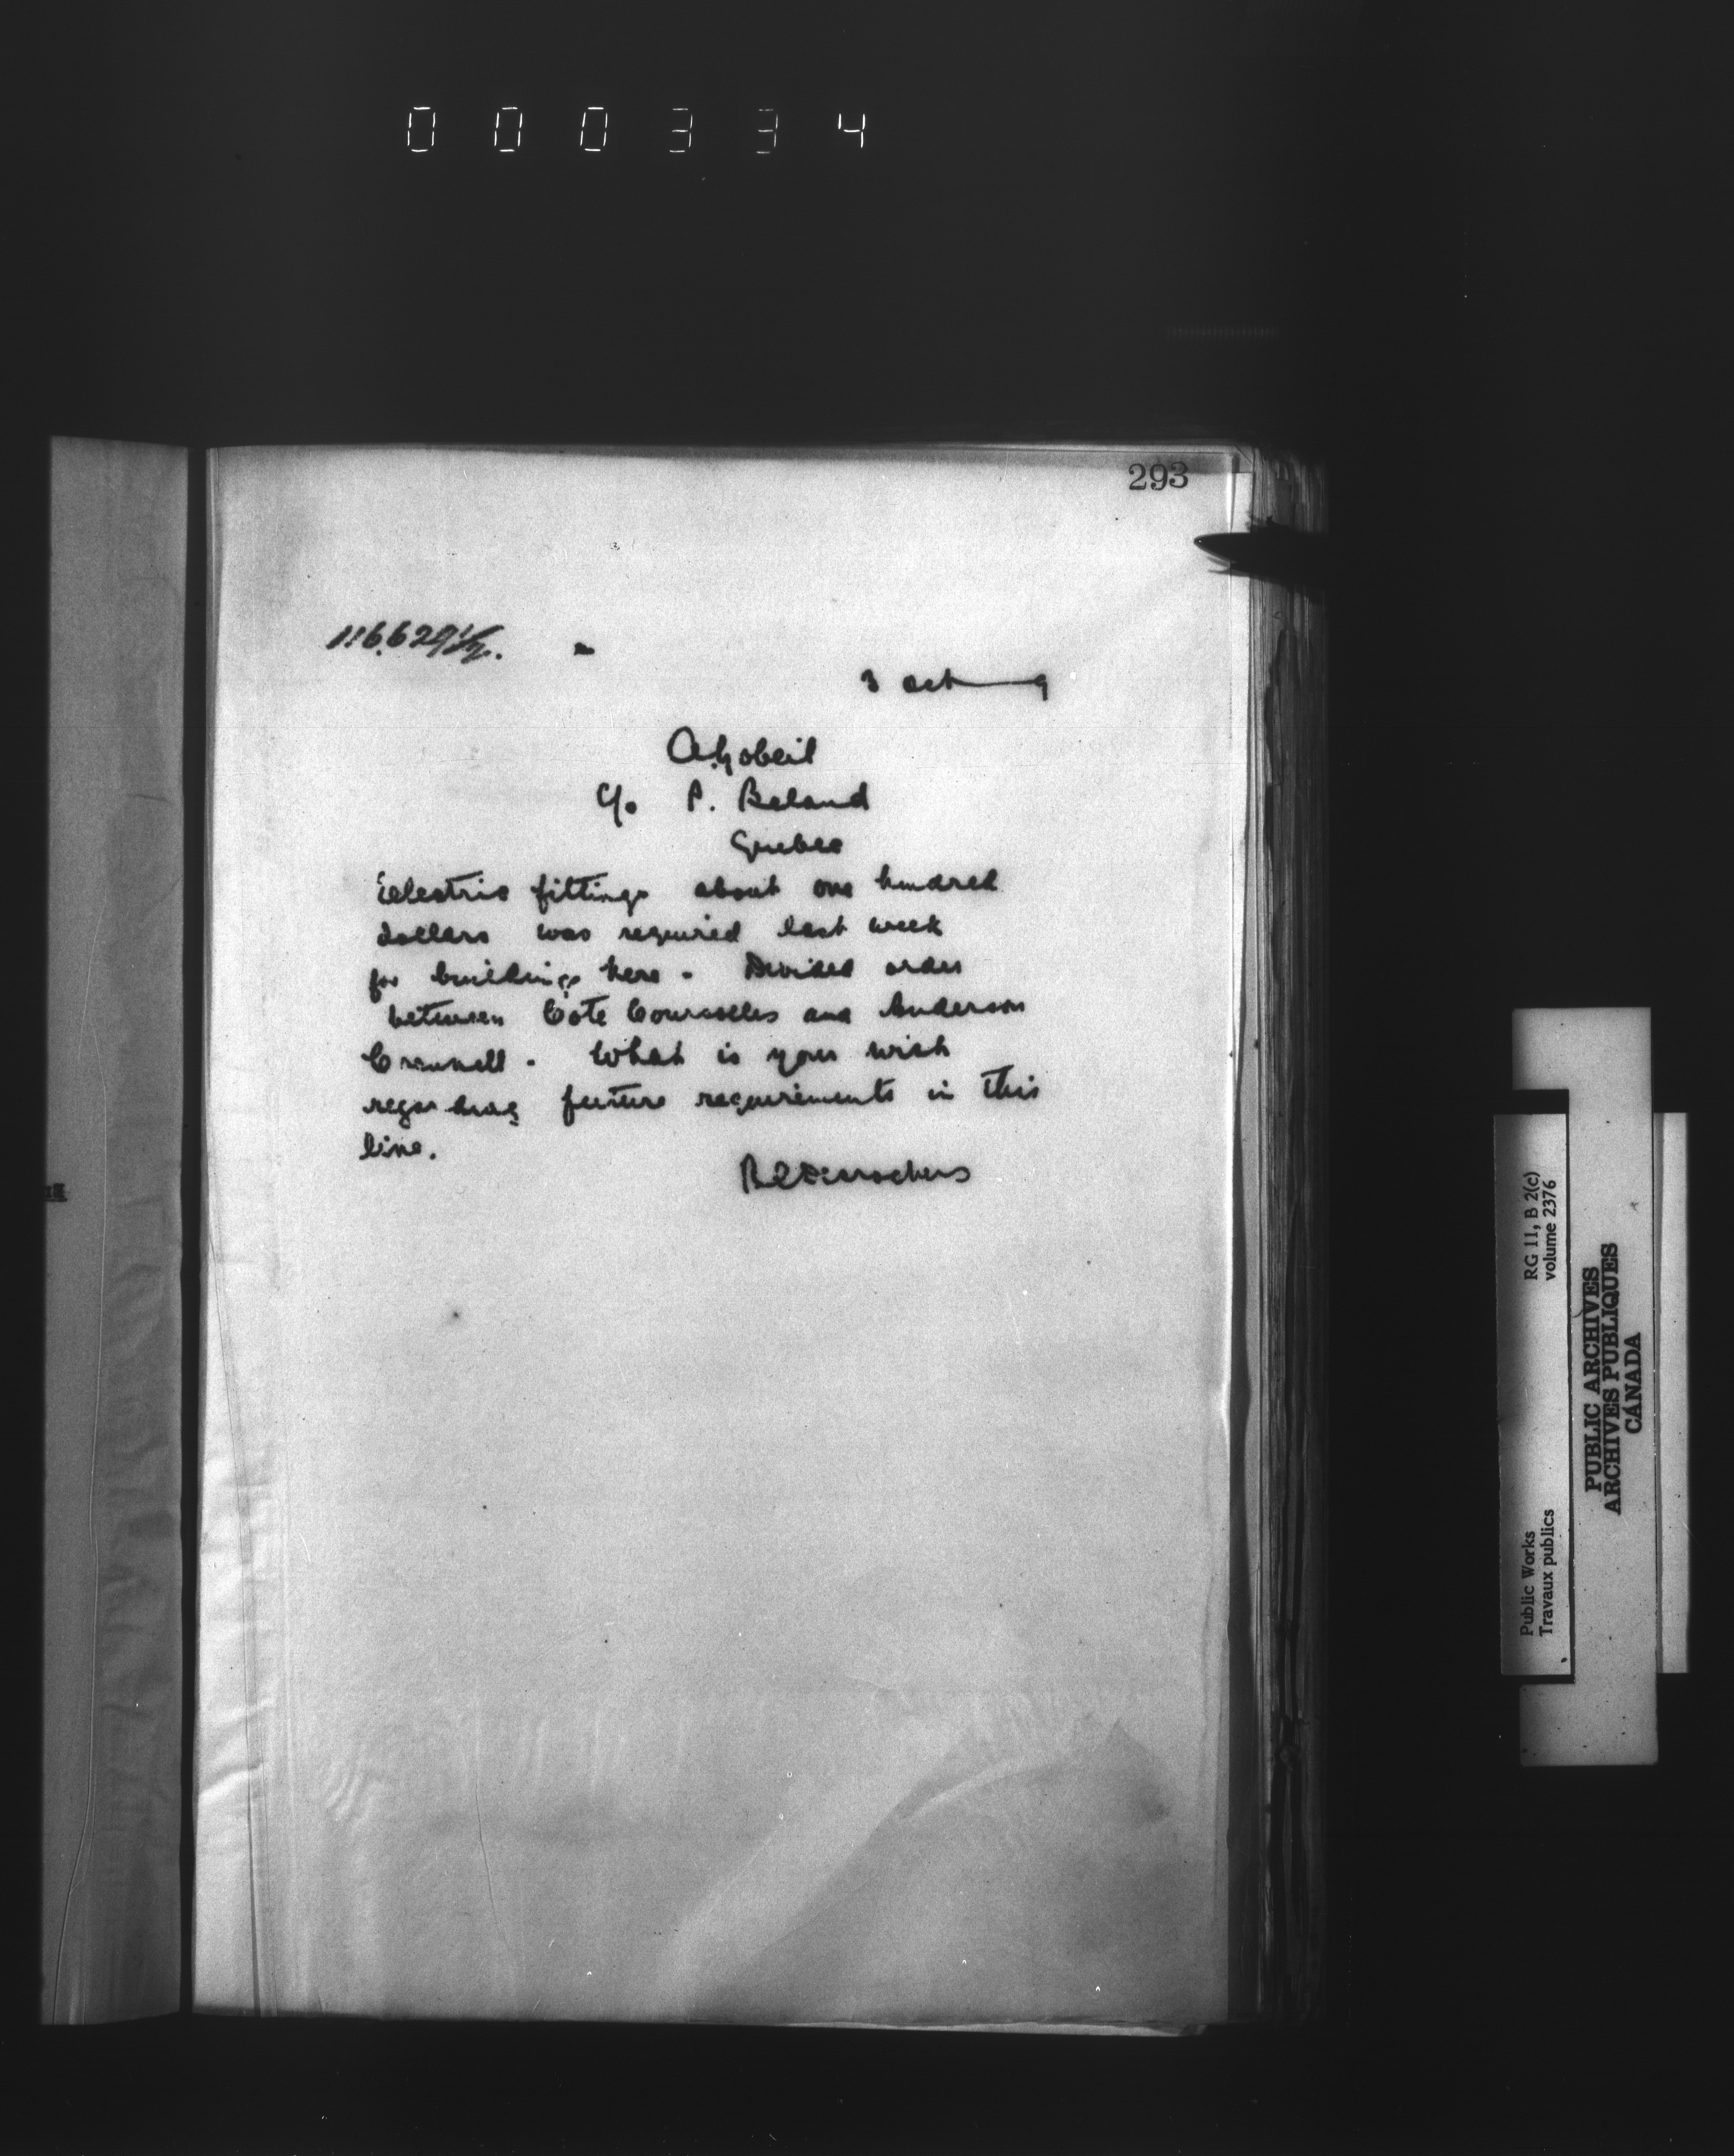 000334
293
116.629½.
3 Oct 9
A. Gobeil
c/o P. Beland
Quebec
Electric fittings about one hundred
dollars was required last week
for buildings here - Divided order
between Cote Courcelles and Anderson
What is your wish
regarding future requirements in this
line.
RC Desrochers
RG 11, B 2(c)
volume 2376
Public Works
Travaux publics
PUBLIC ARCHIVES
ARCHIVES PUBLIQUES
CANADA